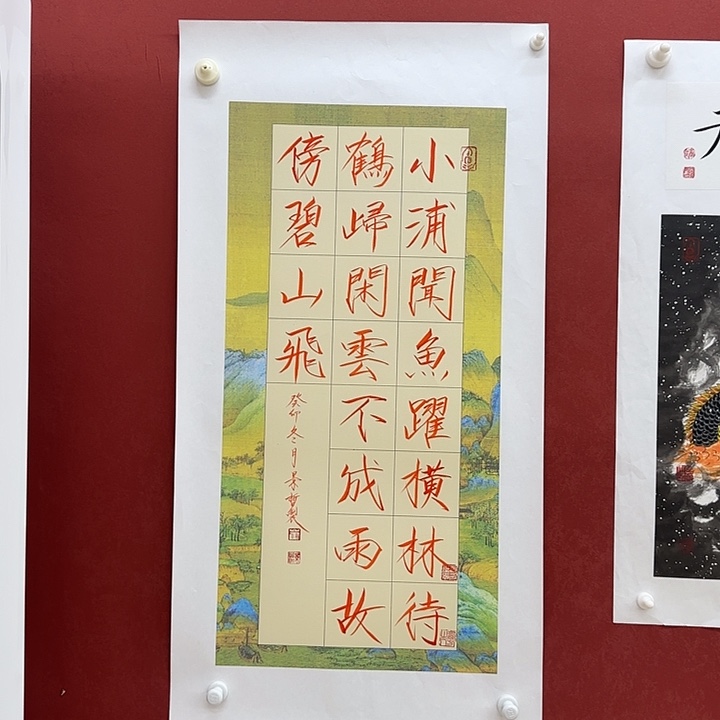 小浦聞魚躍橫林待
鶴歸閑雲不成雨故
傍碧山飛
癸卯冬月景哲製